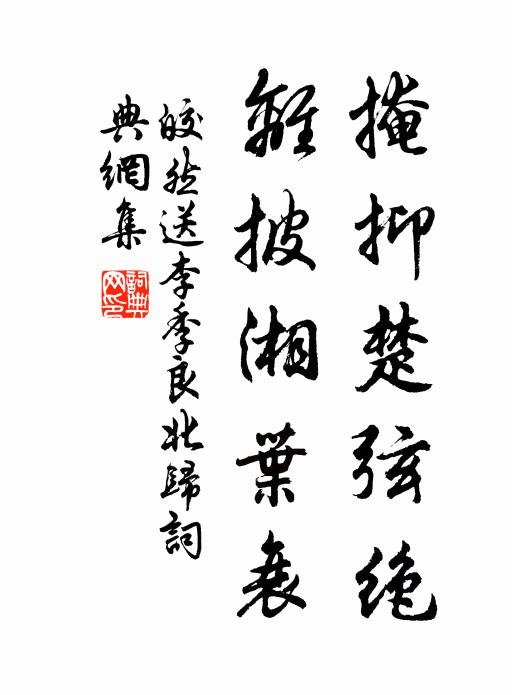 掩抑楚弦绝
離披湘葉衰
皎然送李季良北歸詞
典網集
詞典網印